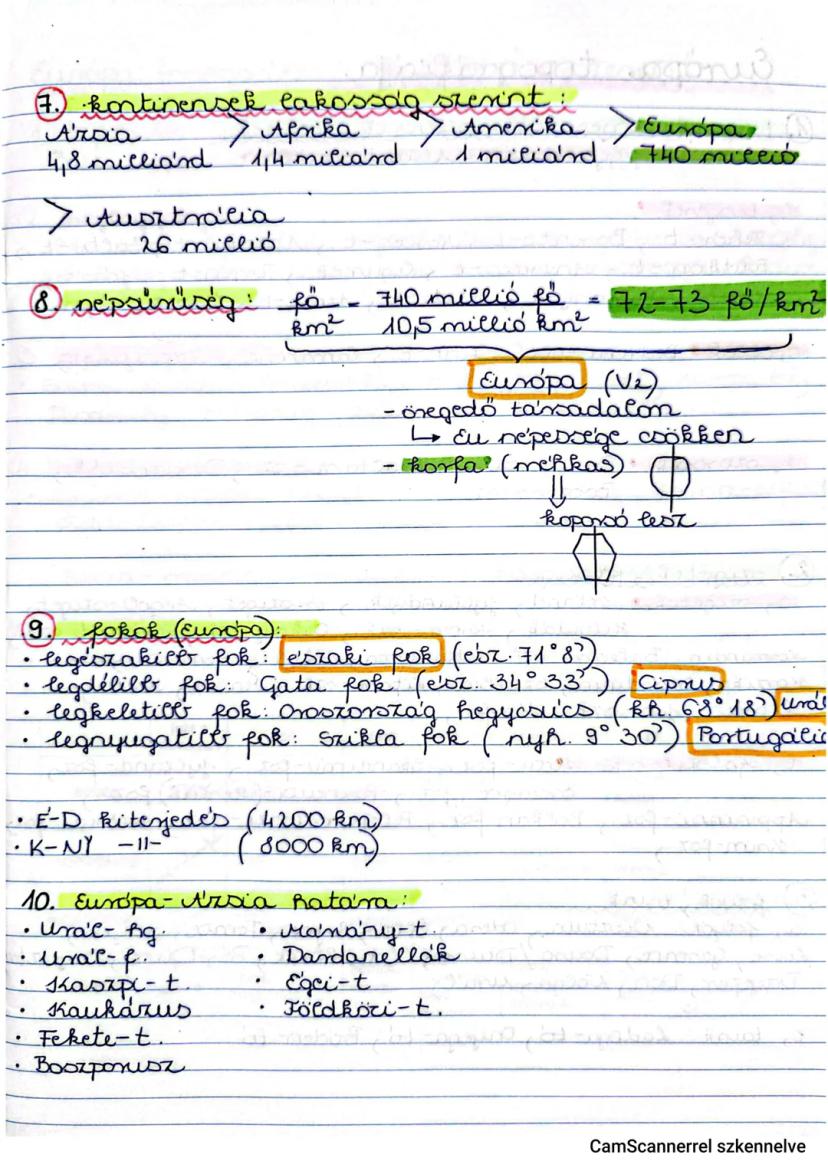 7. kontinensek lakosság szerint:
Ázsia > Afrika > Amerika > Európa
4,8 milliárd 1,4 miliárd 1 miliárd 740 millió
> Ausztrália
26 millió
8. népsűrűség: fő/km² = 740 millió fő/10,5 millió km² = 72-73 fő/km²
Európa (V2)
- öregedő társadalom
↳ Eu népessége csökken
- korfa: (méhkas)
⇓
koporsó lesz
9. fokok (Európa):
• legészakibb fok: északi fok (ész. 71°8')
• legdélibb fok: Gata fok (ész. 34° 33') Ciprus
• legkeletibb fok: Oroszország hegycsúcs (kh. 68° 18') Urál
• legnyugatibb fok: Szikla fok (nyh. 9° 30') Portugália
• É-D kiterjedés (4200 km)
• K-NY -11- (8000 km)
10. Európa-Ázsia határa:
• Urál-hg. • Márvány-t.
• Urál-f. • Dardanellák
• Kaszpi-t. • Égei-t
• Kaukázus • Földközi-t.
• Fekete-t.
• Boszporusz
CamScannerrel szkennelve